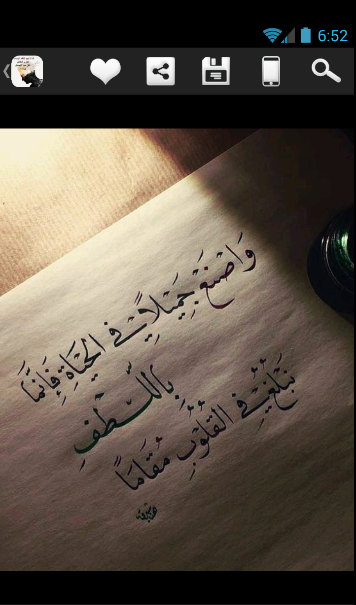 6:52
وَاصْنَعْ جَمِيْلًا فِي الْحَيَاةِ فَإِنَّمَا
بِاللُّطْفِ
نَبْلُغُ فِي الْقُلُوْبِ مُقَامَا